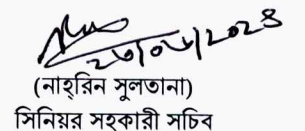 ২৩/০৬/২০২৪
(নাহ্‌রিন সুলতানা)
সিনিয়র সহকারী সচিব